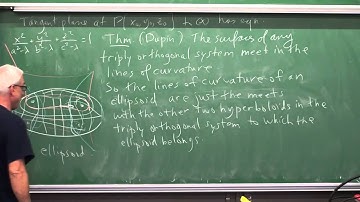 Tangent plane at P(x₀, y₀, z₀) to has eqn.
x²/a²-λ + y²/b²-λ + z²/c²-λ = 1
Thm. (Dupin) The surfaces of any
triply orthogonal system meet in the
lines of curvature
So the lines of curvature of an
ellipsoid are just the meets
with the other two hyperboloids in the
triply orthogonal system to which the
ellipsoid belongs
ellipsoid